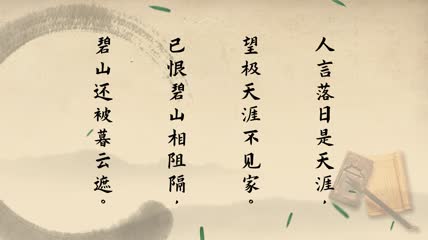 人言落日是天涯，
望极天涯不见家。
已恨碧山相阻隔，
碧山还被暮云遮。